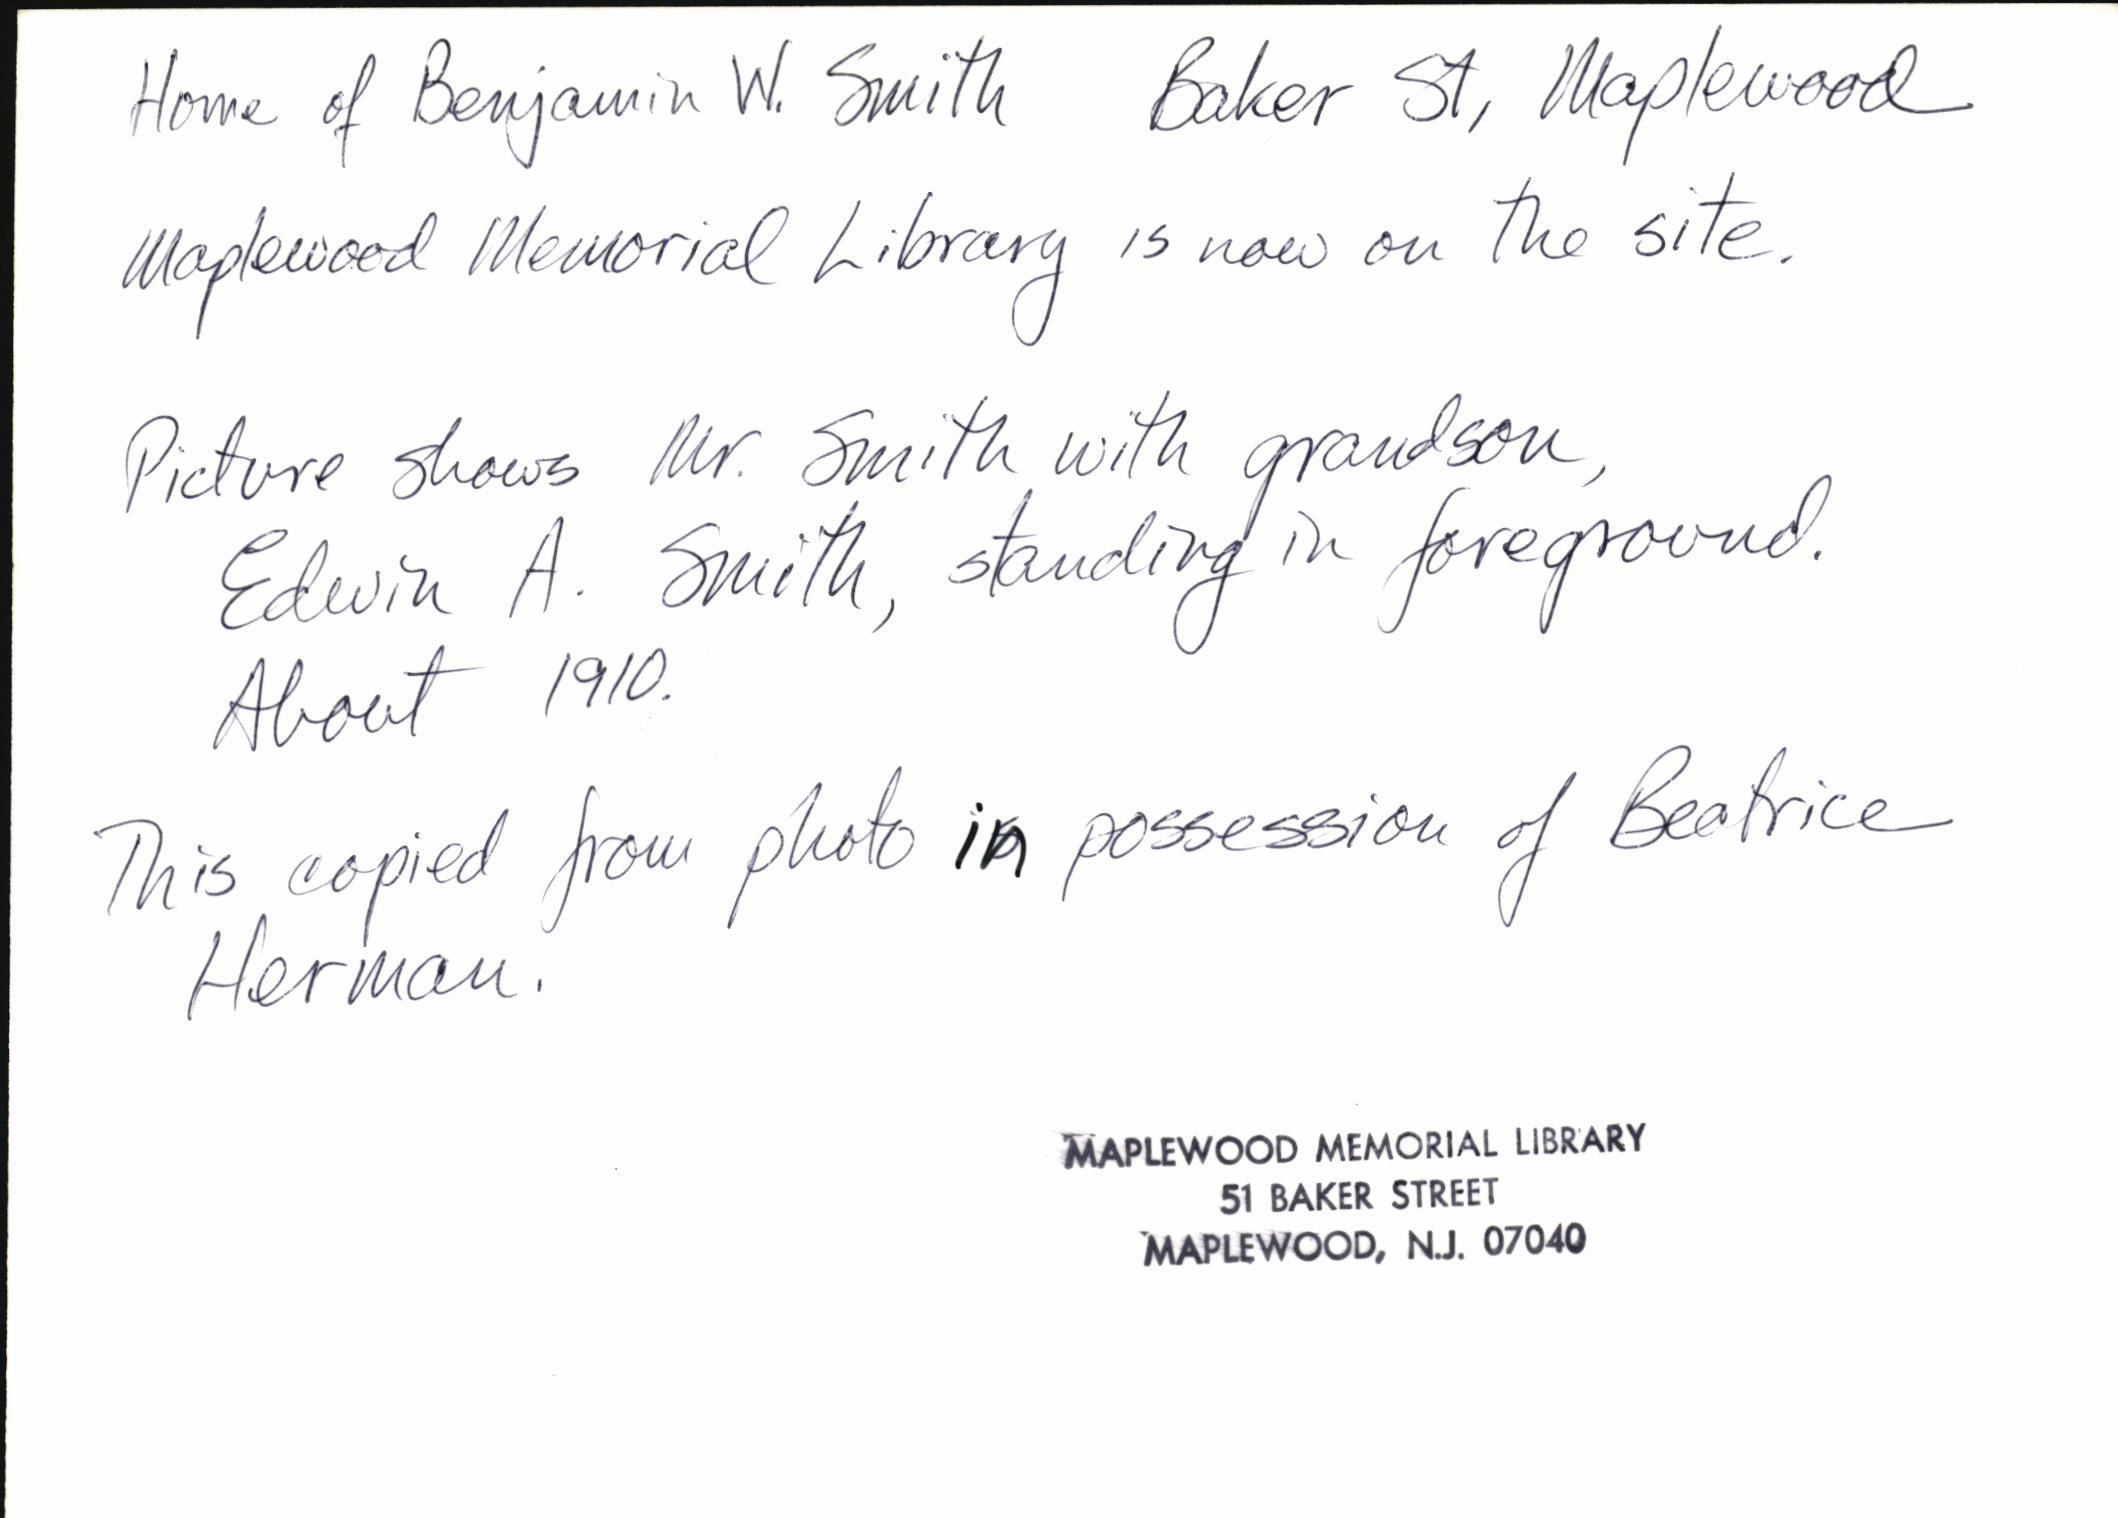 Home of Benjamin W. Smith Baker St, Maplewood
Maplewood Memorial Library is now on the site.
Picture shows Mr. Smith with grandson,
Edwin A. Smith, standing in foreground.
About 1910.
This copied from photo in possession of Beatrice
Herman.
MAPLEWOOD MEMORIAL LIBRARY
51 BAKER STREET
MAPLEWOOD, N.J. 07040